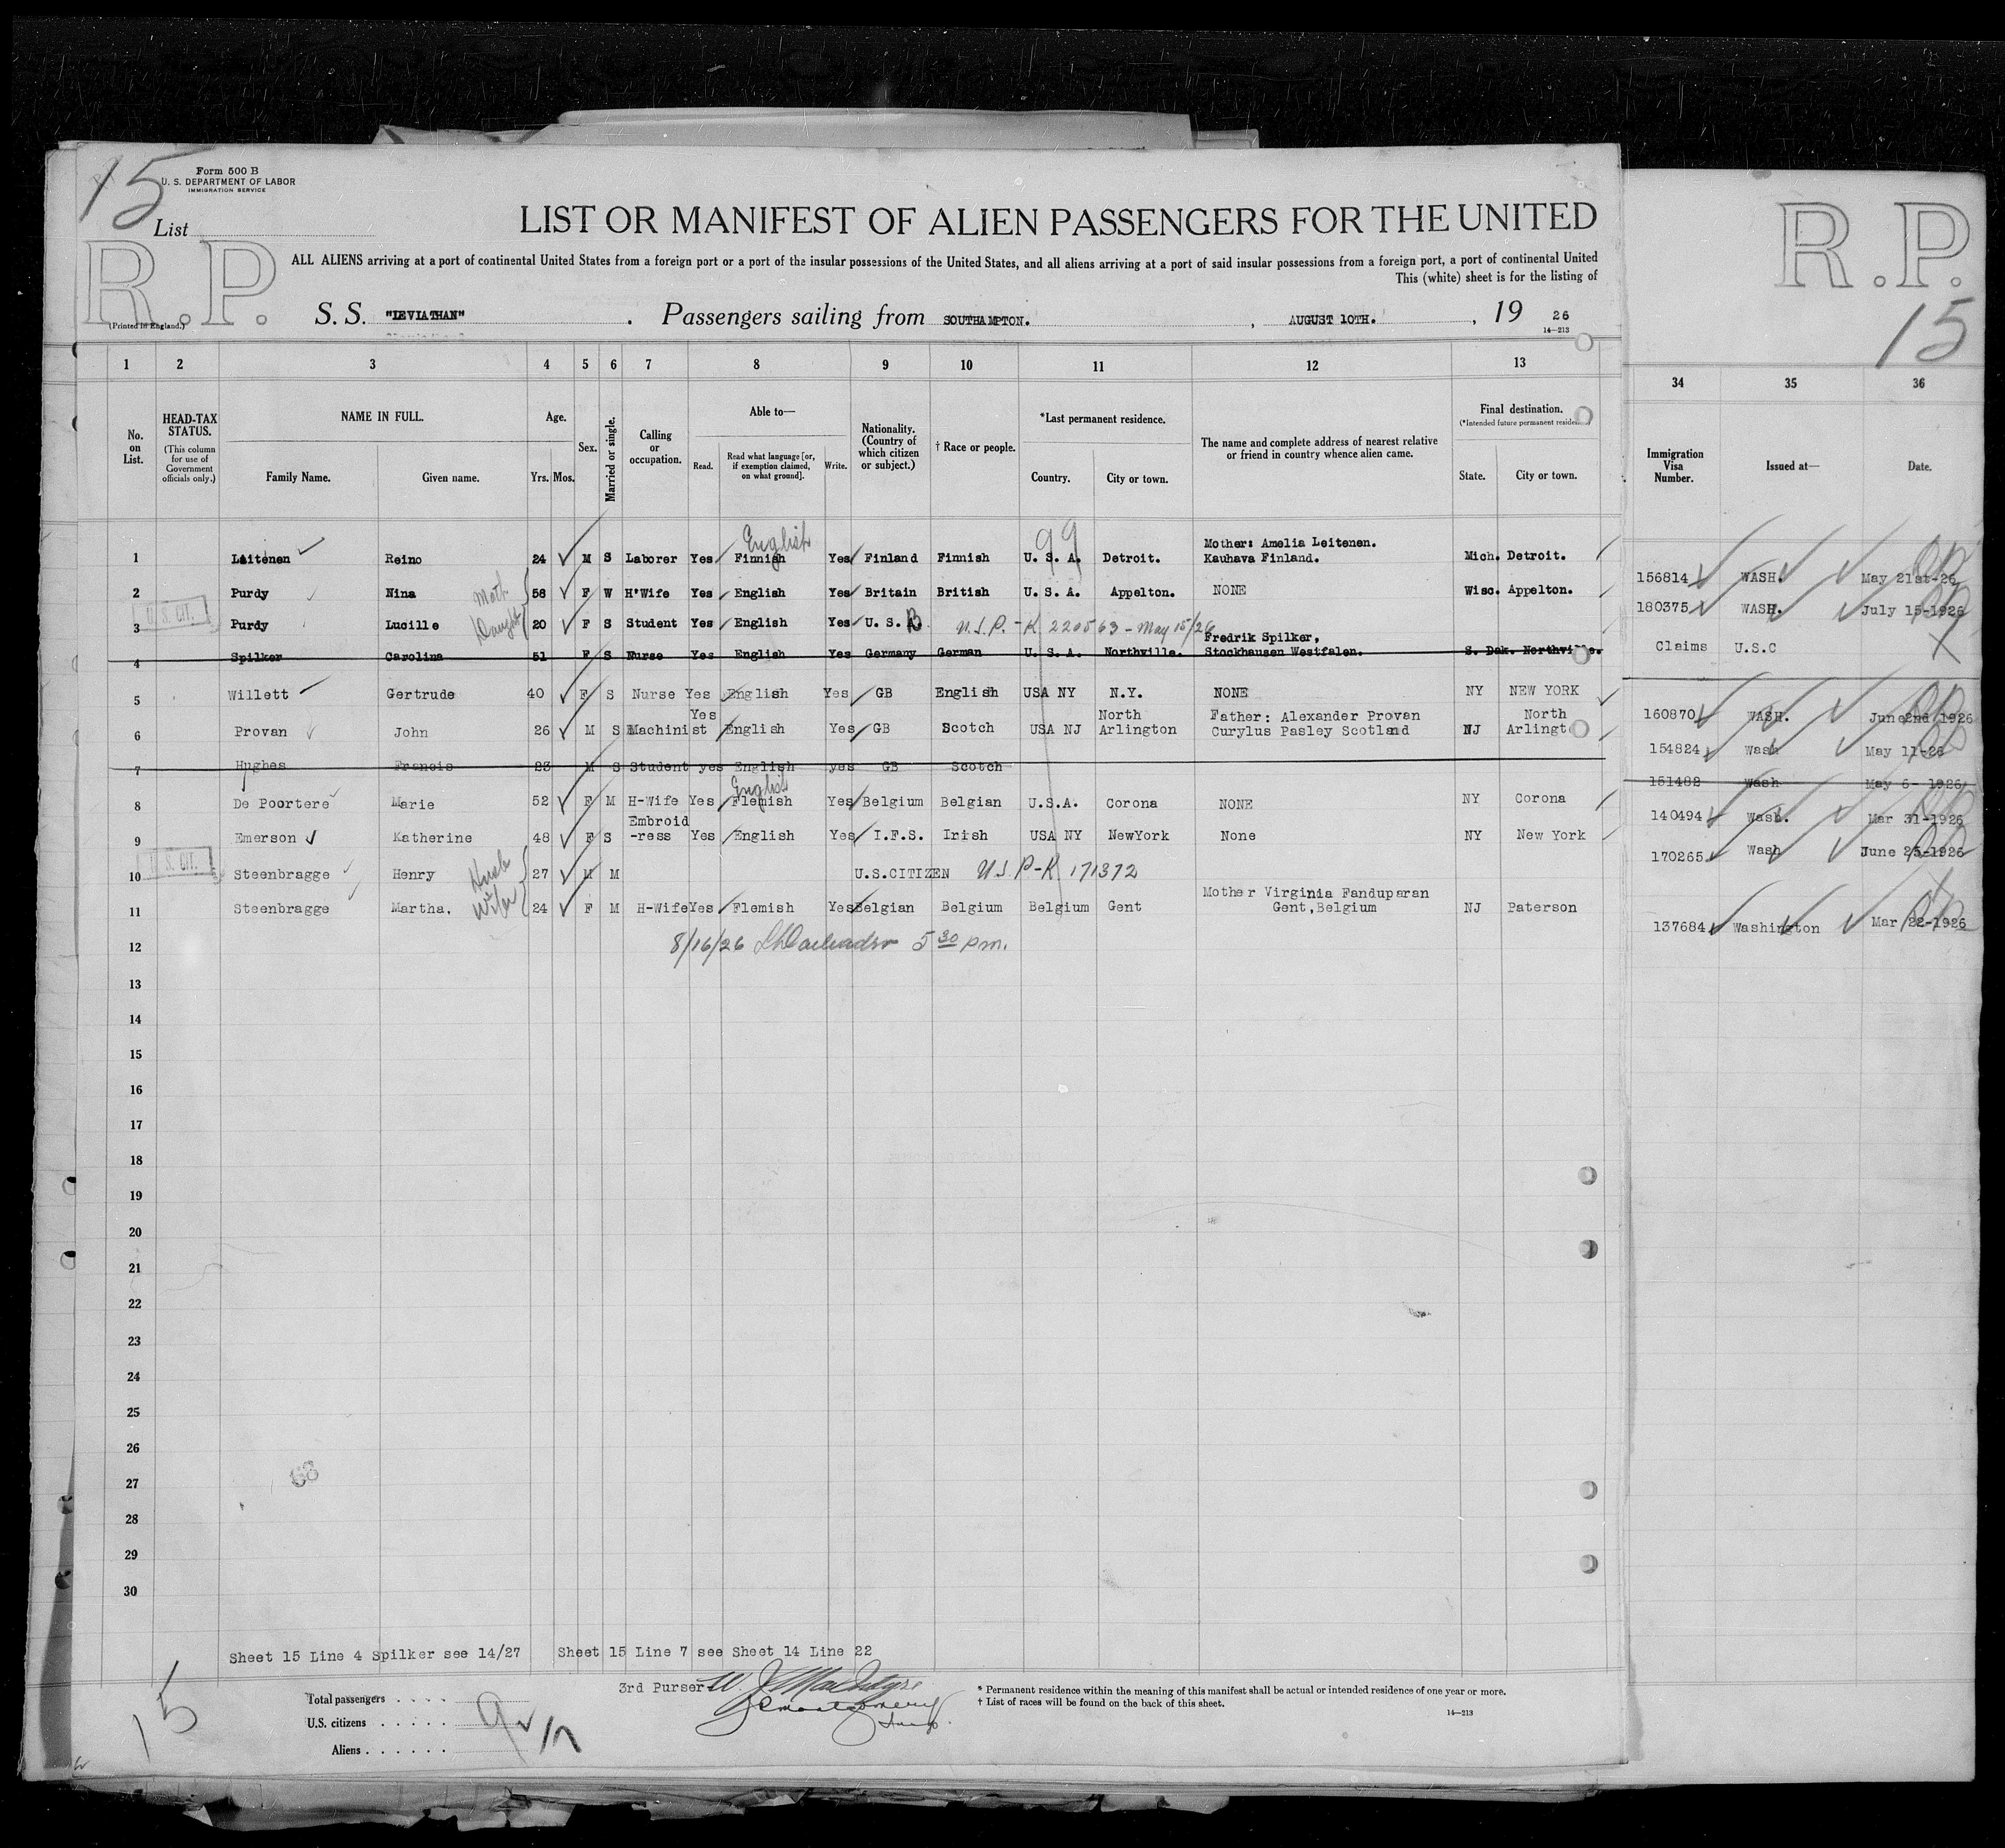 15
Form 500 B
U. S. DEPARTMENT OF LABOR
IMMIGRATION SERVICE
List
R.P.
R.P.
15
LIST OR MANIFEST OF ALIEN PASSENGERS FOR THE UNITED
ALL ALIENS arriving at a port of continental United States from a foreign port or a port of the insular possessions of the United States, and all aliens arriving at a port of said insular possessions from a foreign port, a port of continental United
This (white) sheet is for the listing of
(Printed in England.)
S. S. "LEVIATHAN" . Passengers sailing from SOUTHAMPTON. , AUGUST 10TH. , 19 26
14—213
1 2 3 4 5 6 7 8 9 10 11 12 13 34 35 36
No. on List.
HEAD-TAX STATUS.
(This column for use of Government officials only.)
NAME IN FULL.
Family Name. Given name.
Age.
Yrs. Mos.
Sex.
Married or single.
Calling or occupation.
Able to—
Read. Read what language [or, if exemption claimed, on what ground]. Write.
Nationality. (Country of which citizen or subject.)
† Race or people.
*Last permanent residence.
Country. City or town.
The name and complete address of nearest relative or friend in country whence alien came.
Final destination.
(*Intended future permanent residence.)
State. City or town.
Immigration Visa Number.
Issued at—
Date.
English 99 Mother: Amelia Leitenen.
1 Leitenen Reino 24 M S Laborer Yes Finnish Yes Finland Finnish U. S. A. Detroit. Kauhava Finland. Mich. Detroit. 156814 WASH. May 21st-26
2 Purdy Nina Moth 58 F W H'Wife Yes English Yes Britain British U. S. A. Appelton. NONE Wisc. Appelton. 180375 WASH. July 15-1926
3 U. S. CIT. Purdy Lucille Daught 20 F S Student Yes English Yes U. S. U.S.P.-K 220563 - May 15/26 Claims U.S.C
Fredrik Spilker,
4 Spilker Carolina 51 F S Nurse Yes English Yes Germany German U. S. A. Northville. Stockhausen Westfalen. S. Dak. Northville.
5 Willett Gertrude 40 F S Nurse Yes English Yes GB English USA NY N.Y. NONE NY NEW YORK 160870 WASH. June 2nd 1926
Yes North Father: Alexander Provan North
6 Provan John 26 M S Machinist English Yes GB Scotch USA NJ Arlington Curylus Pasley Scotland NJ Arlingt 154824 Wash May 11-26
7 Hughes Francis 23 M S Student yes English yes GB Scotch 151482 Wash May 6- 1926
English
8 De Poortere Marie 52 F M H-Wife Yes Flemish Yes Belgium Belgian U.S.A. Corona NONE NY Corona 140494 Wash. Mar 31-1926
Embroid
9 Emerson Katherine 48 F S -ress Yes English Yes I.F.S. Irish USA NY NewYork None NY New York 170265 Wash June 25-1926
10 U. S. CIT. Steenbragge Henry Husb 27 M M U.S.CITIZEN U.S. P-K. 171372
Mother Virginia Fanduparan
11 Steenbragge Martha. Wife 24 F M H-Wife Yes Flemish Yes Belgian Belgium Belgium Gent Gent,Belgium NJ Paterson 137684 Washington Mar 22-1926
12 8/16/26 5 30 pm.
13
14
15
16
17
18
19
20
21
22
23
24
25
26
27
28
29
30
68
Sheet 15 Line 4 Spilker see 14/27 Sheet 15 Line 7 see Sheet 14 Line 22
3rd Purser
* Permanent residence within the meaning of this manifest shall be actual or intended residence of one year or more.
† List of races will be found on the back of this sheet.
14—213
15
Total passengers . . . .
U.S. citizens . . . . . 9
Aliens . . . . . .